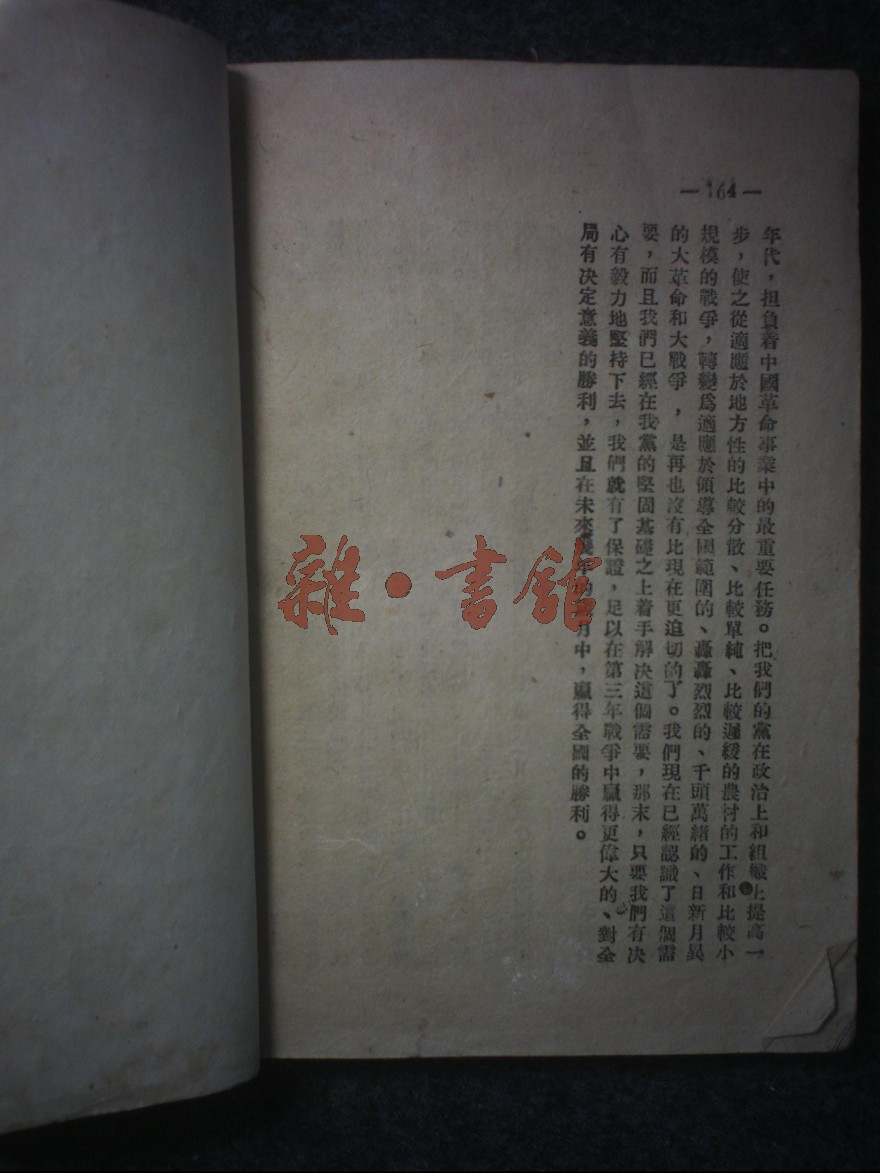 — 164 —
年代，担負着中國革命事業中的最重要任務。把我們的黨在政治上和組織上提高一
步，使之從適應於地方性的比較分散、比較單純、比較遲緩的農村的工作和比較小
規模的戰爭，轉變爲適應於領導全國範圍的、轟轟烈烈的、千頭萬緒的、日新月異
的大革命和大戰爭，是再也沒有比現在更迫切的了。我們現在已經認識了這個需
要，而且我們已經在我黨的堅固基礎之上着手解决這個需要，那末，只要我們有决
心有毅力地堅持下去，我們就有了保證，足以在第三年戰爭中贏得更偉大的、對全
局有决定意義的勝利，並且在未來年的月中，贏得全國的勝利。
雜·書館